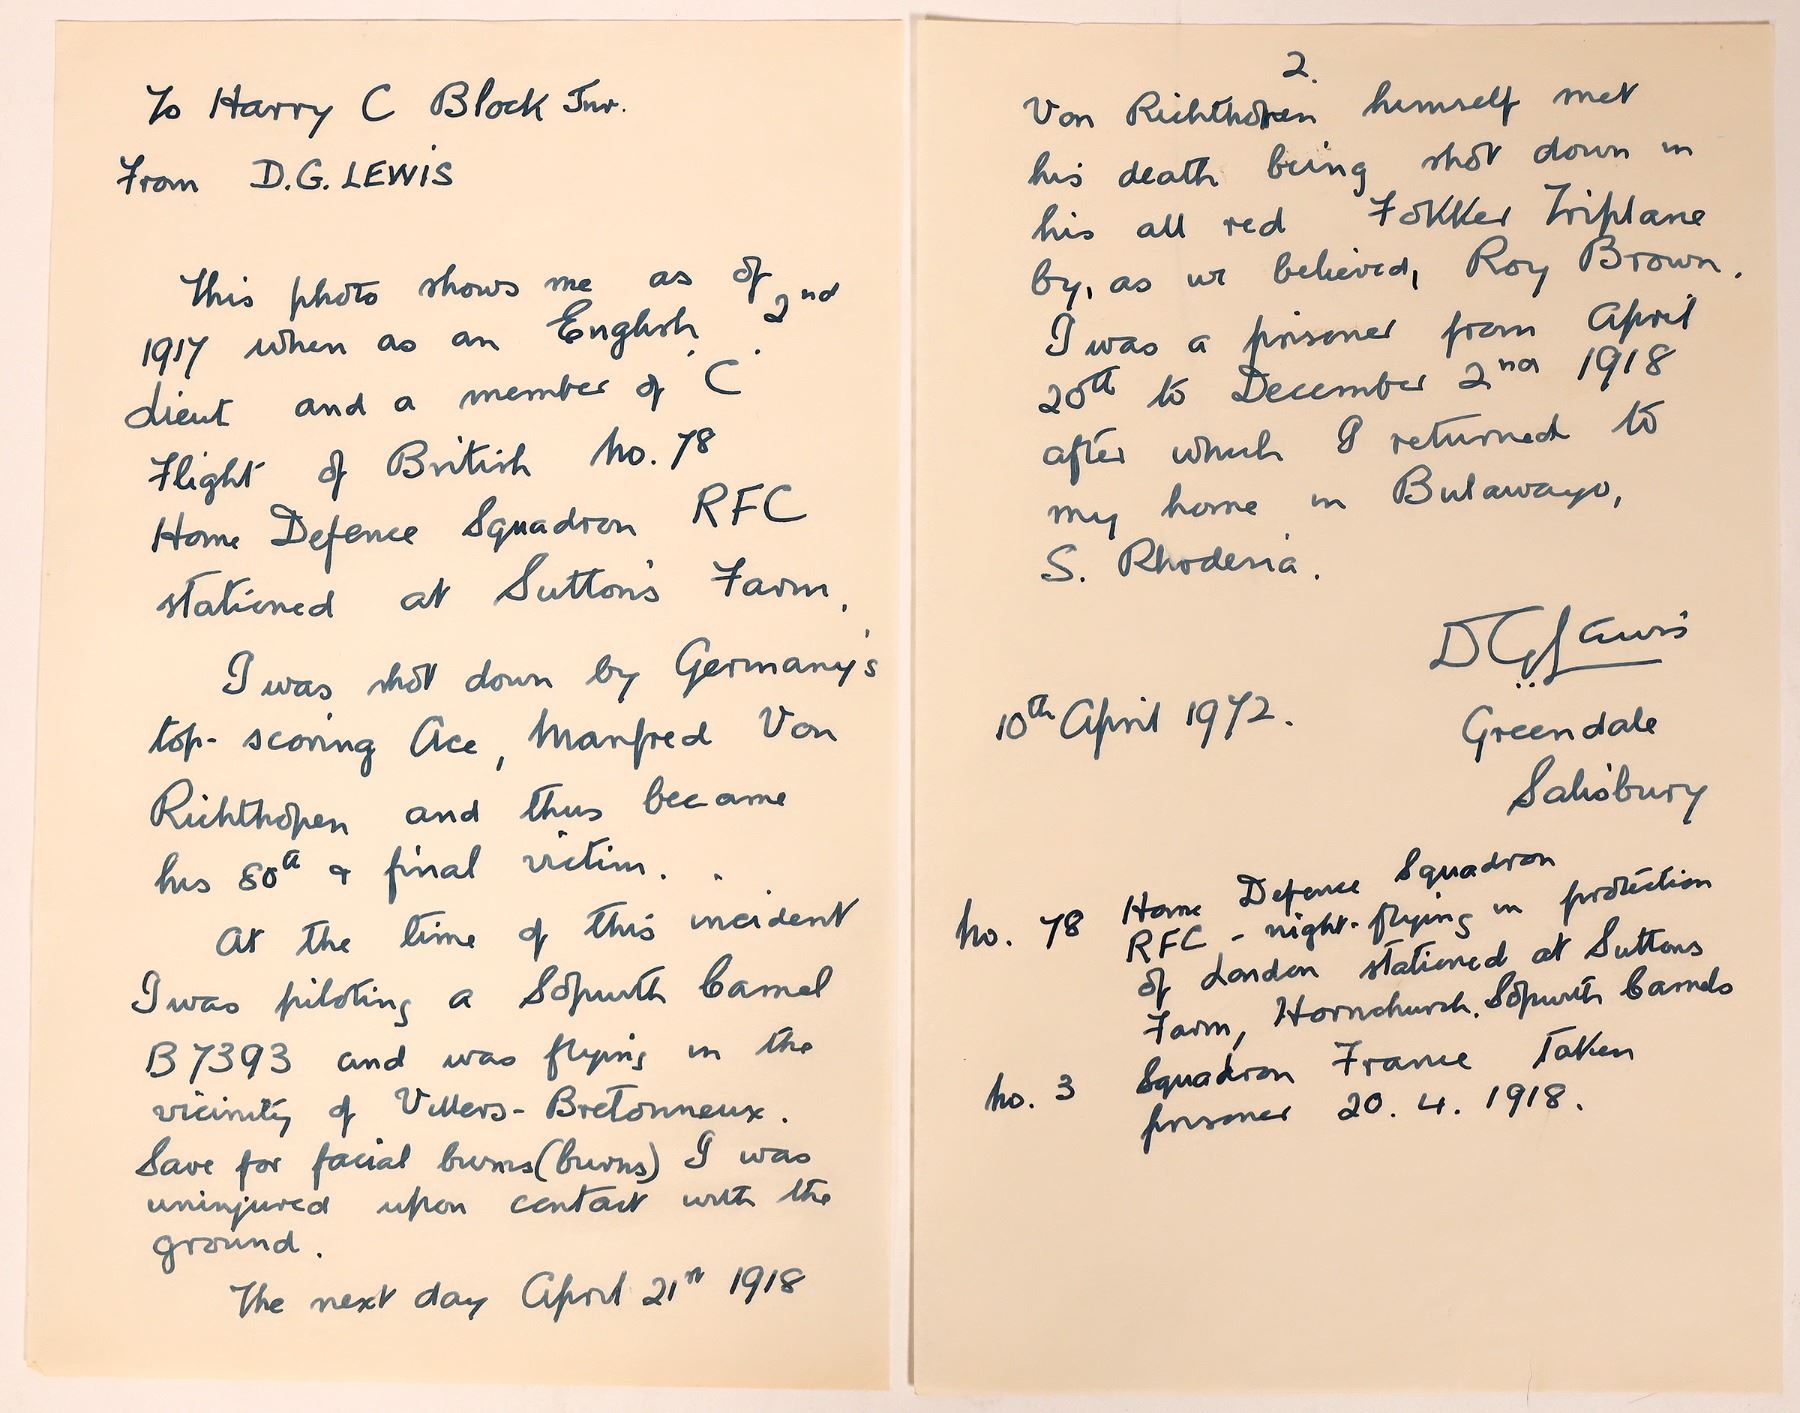 To Harry C Block Jnr.
From D.G. LEWIS
This photo shows me as of
1917 when as an English 2nd
Lieut and a member of 'C'
Flight of British No. 78
Home Defence Squadron RFC
stationed at Sutton's Farm.
I was shot down by Germany's
top-scoring Ace, Manfred Von
Richthofen and thus became
his 80th & final victim.
At the time of this incident
I was piloting a Sopwith Camel
B7393 and was flying in the
vicinity of Villers-Bretonneux.
Save for facial burns (burns) I was
uninjured upon contact with the
ground.
The next day April 21st 1918
2.
Von Richthofen himself met
his death being shot down in
his all red Fokker Triplane
by, as we believed, Roy Brown.
I was a prisoner from April
20th to December 2nd 1918
after which I returned to
my home in Bulawayo,
S. Rhodesia.
D G Lewis
10th April 1972.
Greendale
Salisbury
No. 78 Home Defence Squadron
RFC - night-flying in protection
of London stationed at Suttons
Farm, Hornchurch. Sopwith Camels
No. 3 Squadron France Taken
prisoner 20. 4. 1918.